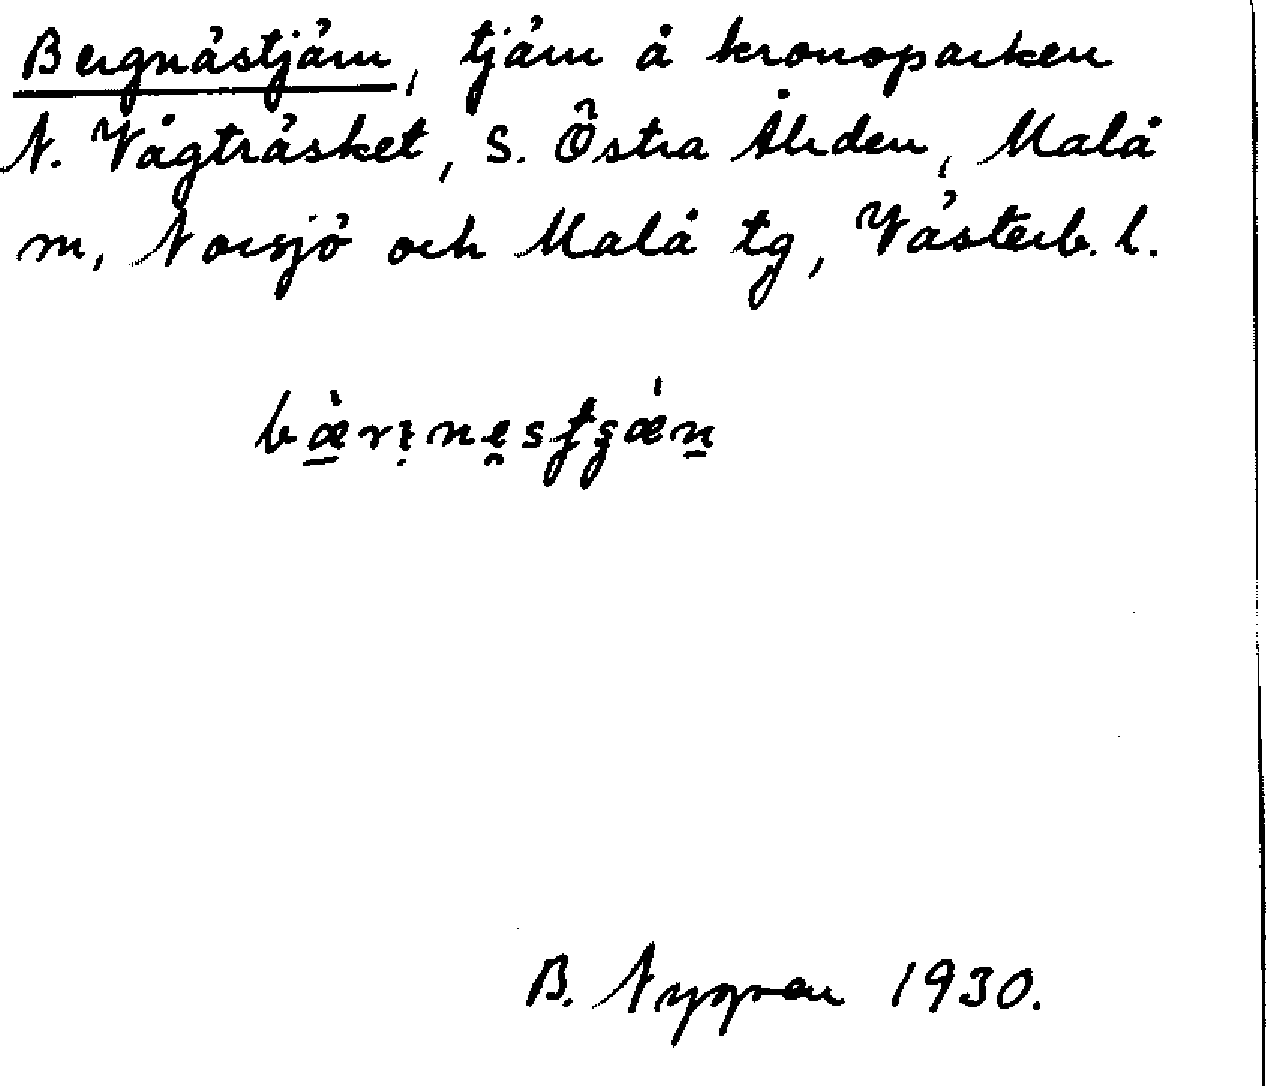 Bergnästjärn, tjärn å kronoparken
N. Vågträsket, S. Östra Åliden, Malå
m, Norsjö och Malå tg, Västerb. l.
B. Nygren 1930.